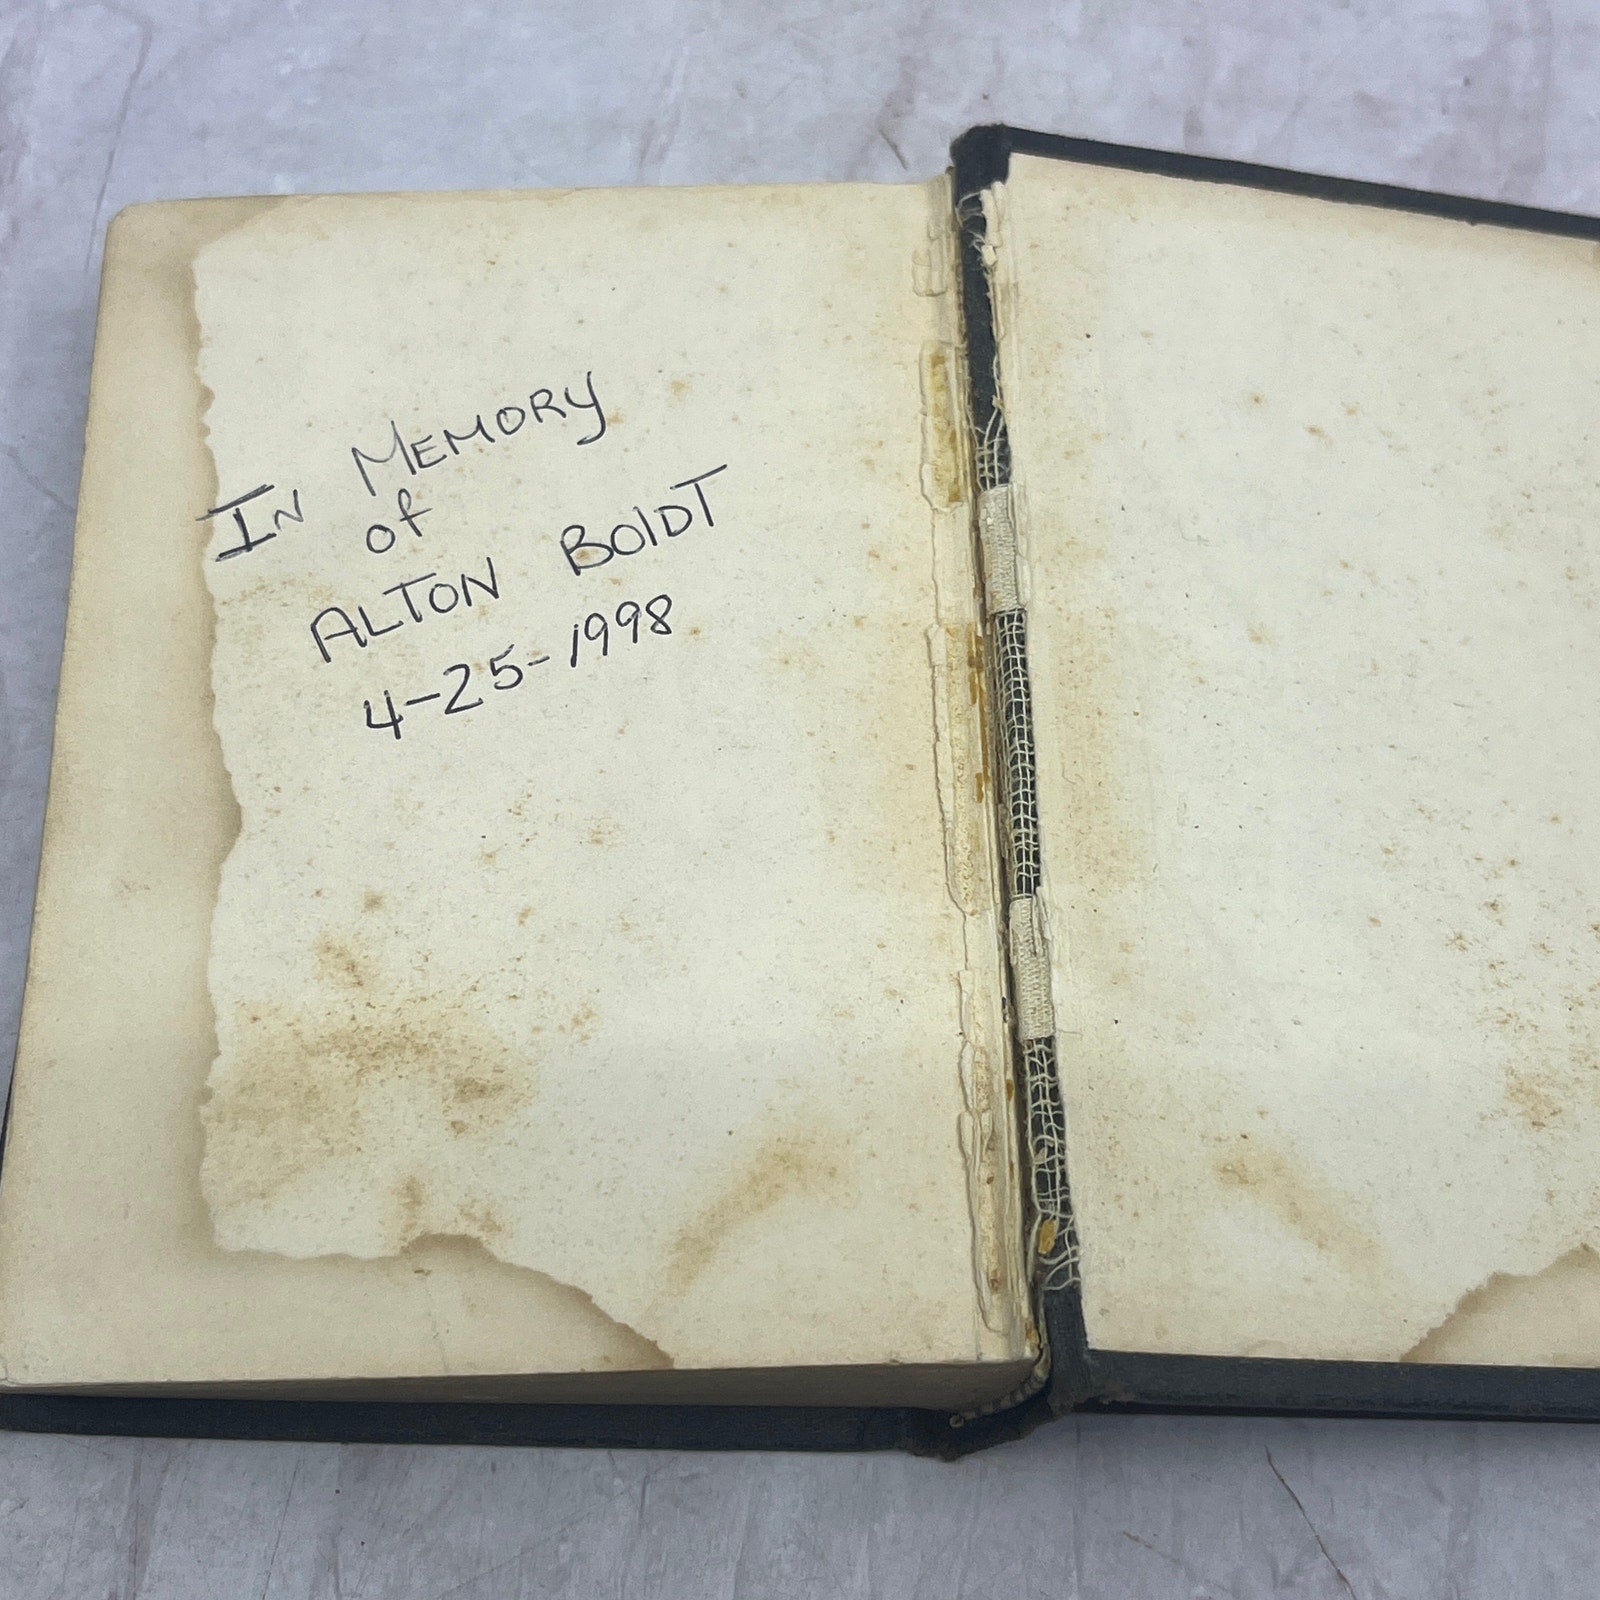 In Memory
of
Alton Boldt
4-25-1998